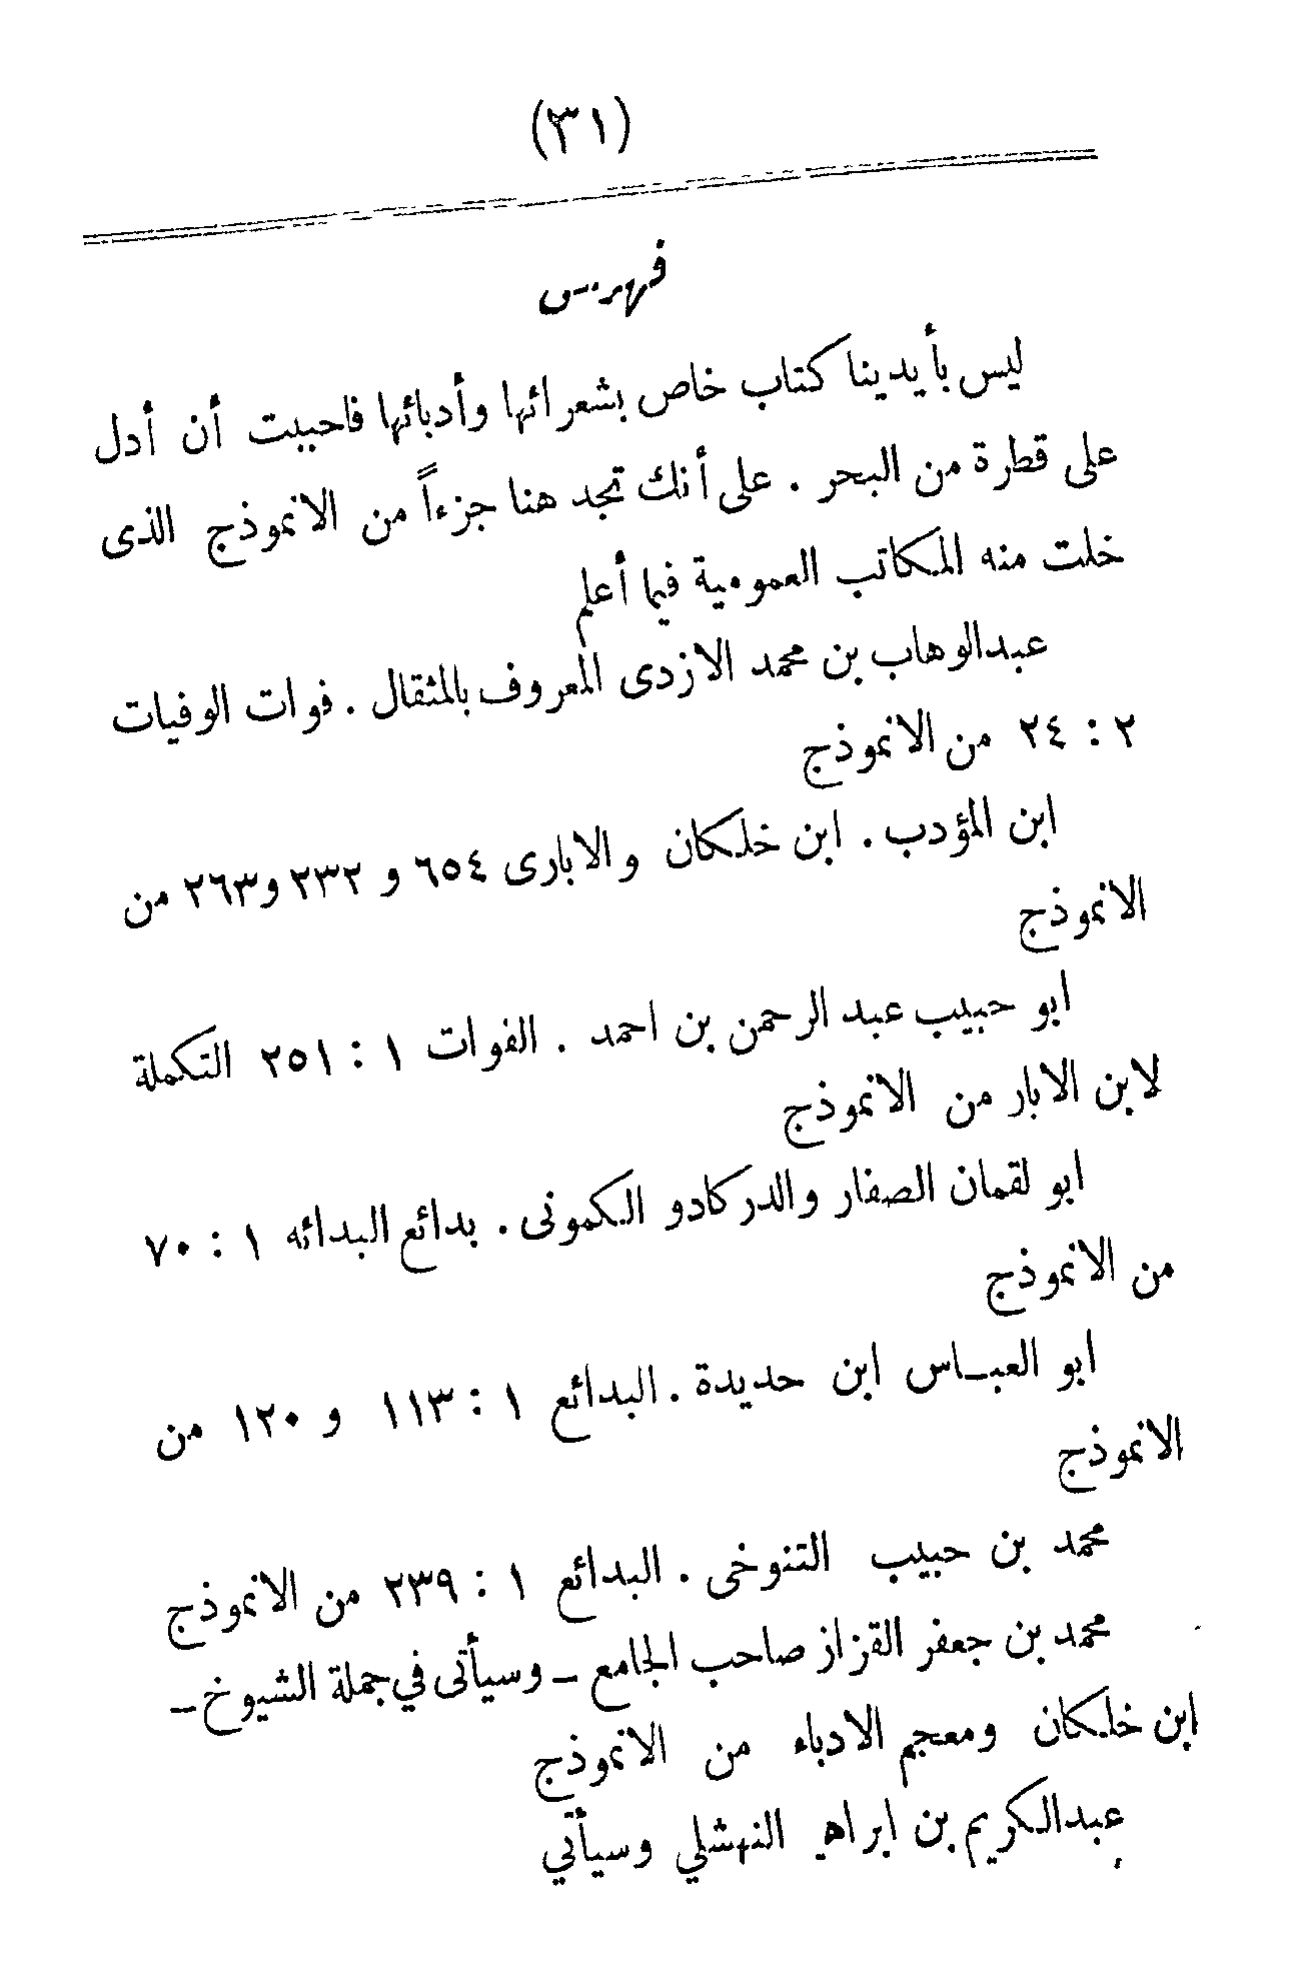 (٣١)
فهرس
ليس بأيدينا كتاب خاص بشعرائها وأدبائها فاحببت أن أدل
على قطرة من البحر . على أنك تجد هنا جزءاً من الانموذج الذى
خلت منه المكاتب العمومية فيما أعلم
عبدالوهاب بن محمد الازدى المعروف بالمثقال . فوات الوفيات
٢ : ٢٤ من الانموذج
ابن المؤدب . ابن خلكان والابارى ٦٥٤ و ٢٣٢ و٢٦٣ من
الانموذج
ابو حبيب عبد الرحمن بن احمد . الفوات ١ : ٢٥١ التكملة
لابن الابار من الانموذج
ابو لقمان الصفار والدركادو الكمونى . بدائع البدائه ١ : ٧٠
من الانموذج
ابو العبـاس ابن حديدة . البدائع ١ : ١١٣ و ١٢٠ من
الانموذج
محمد بن حبيب التنوخى . البدائع ١ : ٢٣٩ من الانموذج
محمد بن جعفر القزاز صاحب الجامع ــ وسيأتى في جملة الشيوخ ــ
ابن خلكان ومعجم الادباء من الانموذج
عبدالكريم بن ابراهيم النهشلي وسيأتي